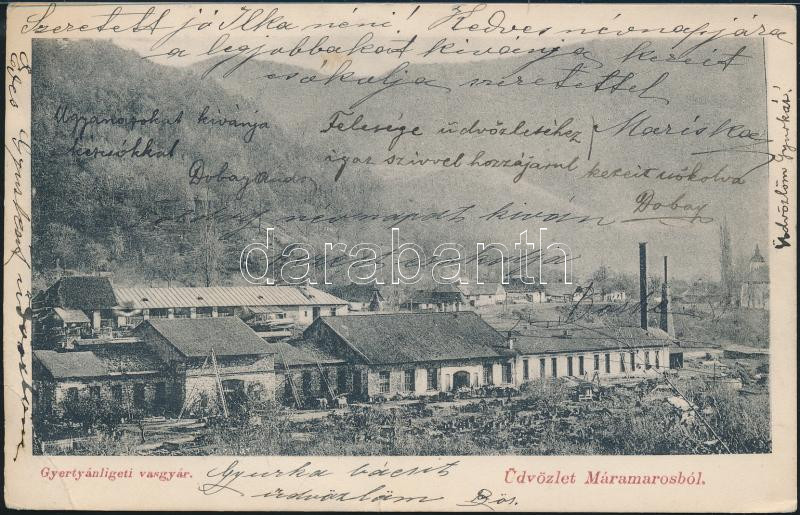 Szeretett jó Ilka néni! Kedves névnapjára
a legjobbakat kivánja kezeit
csókolja szeretettel
Mariska
Ugyanazokat kivánja
kézcsókkal
Dobay Andor
Felesége üdvözletéhez
igaz szivvel hozzájárul kezeit csókolva
Dobay
névnapot kiván
darabanth
Édes
Üdvözlöm Gyurkát!
Gyertyánligeti vasgyár.
Üdvözlet Máramarosból.
Gyurka bácsit
üdvözlöm